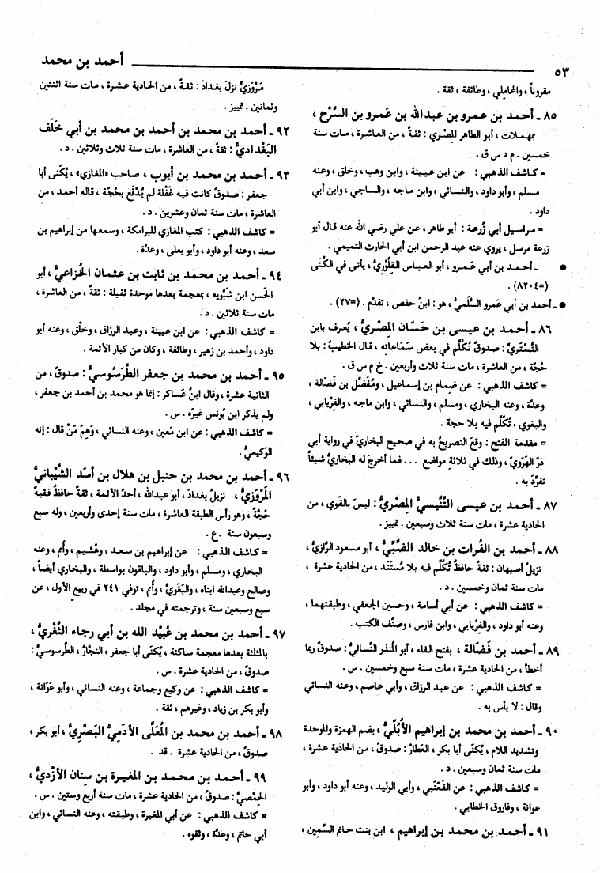 ٥٣
أحمد بن محمد
مقروناً ، والمحاملي ، وطائفة ، ثقة .
٨٥ ـ أحمد بن عمرو بن عبدالله بن عمرو بن السَّرْح ،
بمهملات ، أبو الطاهر المصري : ثقةٌ ، من العاشرة ، مات سنة
خمسين . م د س ق .
= كاشف الذهبي : عن ابن عيينة ، وابن وهب ، وخلق ، وعنه
مسلم ، وأبو داود ، والنسائي ، وابن ماجه ، والساجي ، وابن أبي
داود .
= مراسيل أبي زُرعة : أبو طاهر ، عن علي رضي الله عنه قال أبو
زرعة مرسل ، يروي عنه عبد الرحمن ابن أبي الحارث التميمي .
● ـ أحمد بن أبي عَمرو ، أبو العباس القِلَّوْرِيُّ ، يأتي في الكُنى
(=٨٢٠٤) .
● ـ أحمد بن أبي عَمرو السُّلَميُّ ، هو : ابن حفص ، تقدَّم . (=٢٧) .
٨٦ ـ أحمد بن عيسى بن حَسَّان المصريُّ ، يُعرف بابن
التُّسْتَريِّ : صدوقٌ تُكُلِّم في بعض سَمَاعاته ، قال الخطيب : بلا
حُجَّة ، من العاشرة ، مات سنة ثلاث وأربعين . خ م س ق .
= كاشف الذهبي : عن ضِمام بن إسماعيل ، ومُفَضَّل بن فَضَالة ،
وعدَّة ، وعنه البخاري ، ومسلم ، والنسائي ، وابن ماجه ، والفريابي ،
والبغوي . تُكُلِّم فيه بلا حجة .
= مقدمة الفتح : وقع التصريح به في صحيح البخاري في رواية أبي
ذرّ الهَرَوي ، وذلك في ثلاثة مواضع ... فما أخرج له البخاري شيئاً
تفرَّد به .
٨٧ ـ أحمد بن عيسى التِّنِّيسيُّ المصريُّ : ليس بالقوي ، من
الحادية عشرة ، مات سنة ثلاث وسبعين . تمييز .
٨٨ ـ أحمد بن الفُرات بن خالد الضَّبِّيُّ ، أبو مسعود الرَّازيُّ ،
نزيل أصبهان : ثقةٌ حافظٌ تُكُلِّم فيه بلا مُسْتَند ، من الحادية عشرة ،
مات سنة ثمان وخمسين . د .
= كاشف الذهبي : عن أبي أسامة ، وحسين الجعفي ، وطبقتهما ،
وعنه أبو داود ، والفريابي ، وابن فارس ، وصنَّف الكتب .
٨٩ ـ أحمد بن فَضَالة ، بفتح الفاء ، أبو المنذر النَّسائيُّ : صدوقٌ ربما
أخطأ ، من الحادية عشرة ، مات سنة سبع وخمسين . س .
= كاشف الذهبي : عن عبد الرزاق ، وأبي عاصم ، وعنه النسائي
وقال : لا بأس به .
٩٠ ـ أحمد بن محمد بن إبراهيم الأُبُلِّيُّ ، بضم الهمزة والموحدة
وتشديد اللام ، يُكنى أبا بكر ، العَطَّار : صدوقٌ ، من الحادية عشرة ،
مات سنة ثمان وسبعين . د .
= كاشف الذهبي : عن القَعْنَبي ، وأبي الوليد ، وعنه أبو داود ، وأبو
عوانة ، وفاروق الخطابي .
٩١ ـ أحمد بن محمد بن إبراهيم ، ابن بنت حاتم السَّمِين ،
مَرْوَزيُّ نزلَ بغدادَ : ثقةٌ ، من الحادية عشرة ، مات سنة اثنتين
وثمانين . تمييز .
٩٢ ـ أحمد بن محمد بن أحمد بن محمد بن أبي خَلَف
البَغْداديُّ : ثقةٌ ، من العاشرة ، مات سنة ثلاث وثلاثين . د .
٩٣ ـ أحمد بن محمد بن أيوب ، صاحب «المغازي» ، يُكْنى أبا
جعفر : صدوقٌ كانت فيه غَفْلة لم يُدْفَع بحُجَّة ، قاله أحمد ، من
العاشرة ، مات سنة ثمان وعشرين . د .
= كاشف الذهبي : كتب المغازي للبرامكة ، وسمعها من إبراهيم بن
سعد ، وعنه أبو داود ، وأبو يعلى ، وعدَّة .
٩٤ ـ أحمد بن محمد بن ثابت بن عثمان الخُزاعيُّ ، أبو
الحسن ابن شَبُّويه ، بمعجمة بعدها موحدة ثقيلة : ثقةٌ ، من العاشرة ،
مات سنة ثلاثين . د .
= كاشف الذهبي : عن ابن عيينة ، وعبد الرزاق ، وخلْق ، وعنه أبو
داود ، وأحمد بن زهير ، وطائفة ، وكان من كبار الأئمة .
٩٥ ـ أحمد بن محمد بن جعفر الطَّرَسُوسيُّ : صدوقٌ ، من
الثانية عشرة ، وقال ابنُ عساكر : إنما هو محمد بن أحمد بن جعفر ،
ولم يذكر ابن يُونس غيرَه . س .
= كاشف الذهبي : عن ابن مَعين ، وعنه النسائي ، وَهِمَ مَنْ قال : إنه
الوَكيعيُّ .
٩٦ ـ أحمد بن محمد بن حنبل بن هلال بن أسَد الشَّيْبانيُّ
المَرْوَزيُّ ، نزيلُ بغدادَ ، أبو عبدالله ، أحدُ الأئمة ، ثقةٌ حافظٌ فقيهٌ
حُجَّةٌ ، وهو رأسُ الطبقة العاشرة ، مات سنة إحدى وأربعين ، وله سبع
وسبعون سنة . ع .
= كاشف الذهبي : عن إبراهيم بن سعد ، وهُشيم ، وأُمم ، وعنه
البخاري ، ومسلم ، وأبو داود ، والباقون بواسطة ، والبخاري أيضاً ،
وصالح وعبدالله ابناه ، والبَغَويُّ ، وأُمم ، توفي ٢٤١ في ربيع الأول ، عن
سبع وسبعين سنة ، وترجمته في مجلد .
٩٧ ـ أحمد بن محمد بن عُبَيْد الله بن أبي رجاء الثَّغْريُّ ،
بالمثلثة بعدها معجمة ساكنة ، يُكنَّى أبا جعفر ، النجَّار ، الطَّرَسوسيُّ :
صدوقٌ ، من الحادية عشرة . س .
= كاشف الذهبي : عن وكيع وجماعة ، وعنه النسائي ، وأبو عَوَانة ،
وأبو بكر بن زياد ، وغيرهم ، ثقة .
٩٨ ـ أحمد بن محمد بن المُعَلَّى الأدَميُّ البَصْريُّ ، أبو بكر ،
صدوقٌ ، من الحادية عشرة . قد .
٩٩ ـ أحمد بن محمد بن المغيرة بن سِنان الأزْدِيُّ ،
الحِمْصيُّ : صدوقٌ ، من الحادية عشرة ، مات سنة أربع وستين . س .
= كاشف الذهبي : عن أبي المغيرة ، وطبقته ، وعنه النسائي ، وابن
أبي حاتم ، وعدَّة ، وثَّقوه .